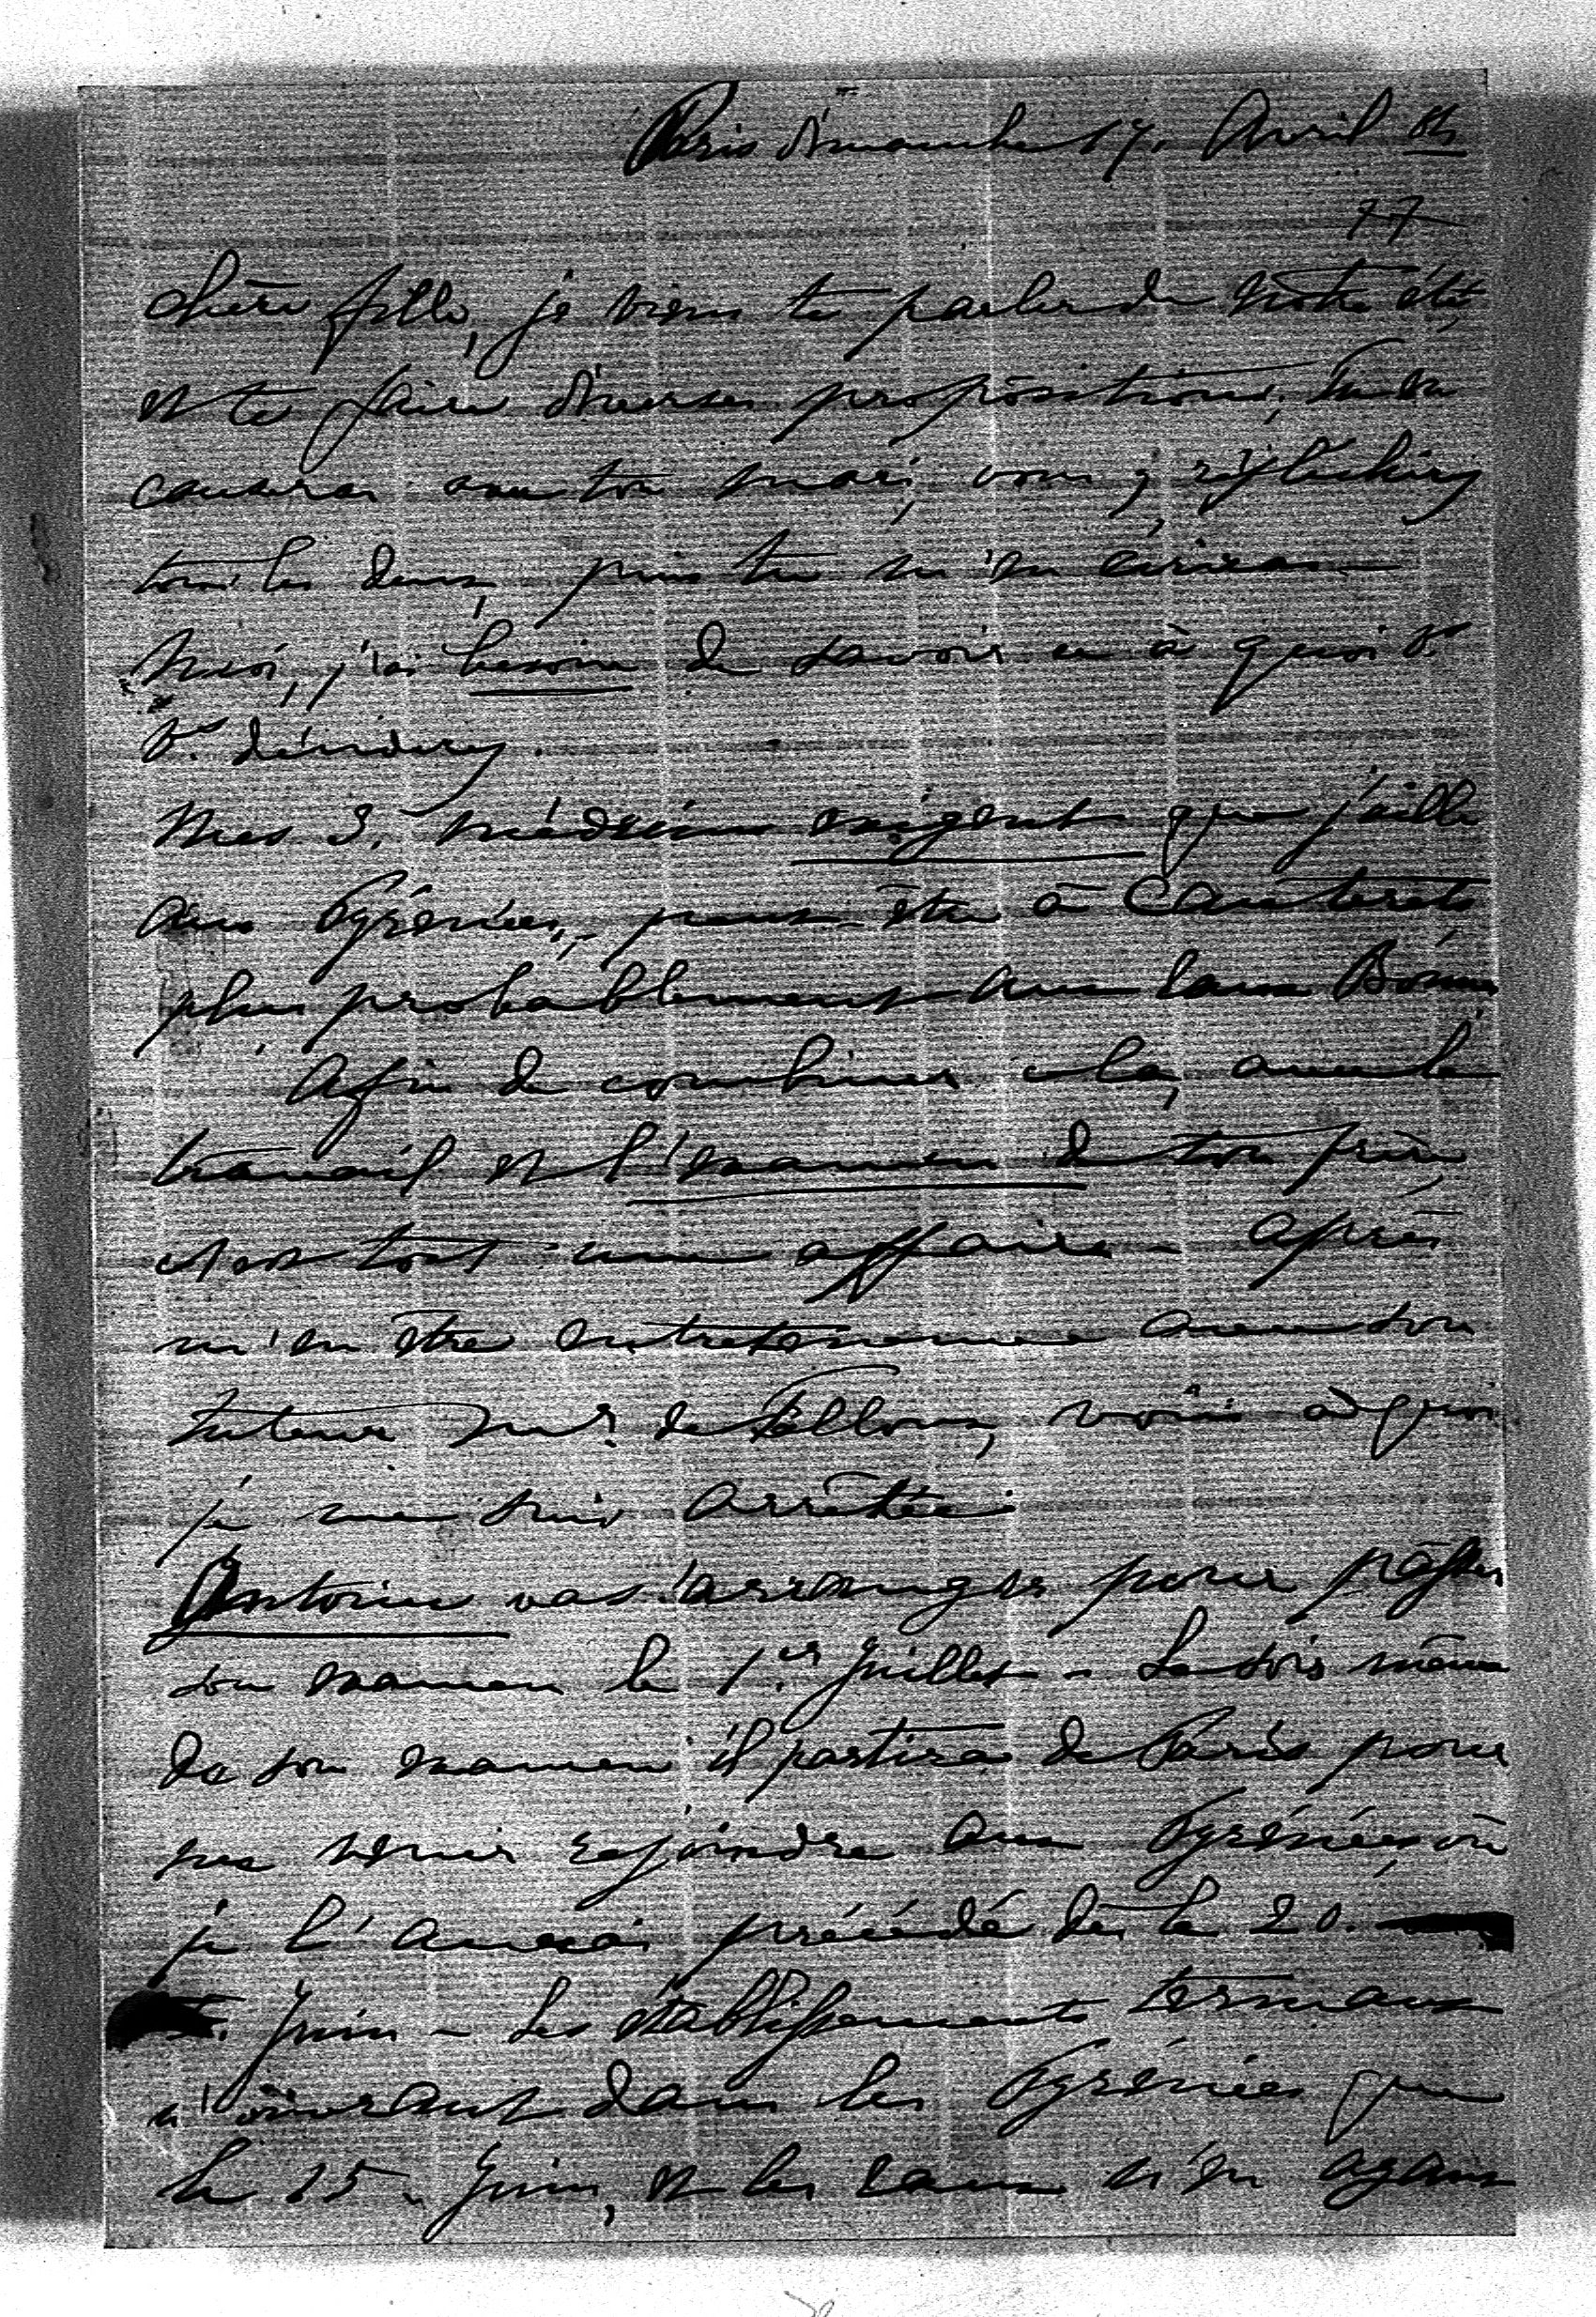 Paris dimanche 17. Avril 81
77
chère fille, je viens te parler de notre été,
et te faire diverses propositions; tu en
causeras avec ton mari, vous y réfléchirez
tous les deux, puis tu m'en écriras —
Moi, j'ai besoin de savoir à quoi v.s
v.s déciderez.
Mes 3. médecins exigent que j'aille
aux Pyrénées, peut-être à Cauterets
plus probablement aux Eaux Bonnes
Afin de combiner cela, avec le
travail et l'examen de ton frère
c'est tout une affaire — Après
m'en être entretenue avec son
tuteur Mr. de voici à quoi
je me suis arrêtée:
Antoine va s'arranger pour passer
son examen le 1.er Juillet — Le soir même
de son examen il partira de Paris pour
me venir rejoindre aux Pyrénées, où
je l'aurai précédé dès le 20.
Juin — Les établissements termaux
n'ouvrant dans les Pyrénées que
le 15 — Juin, et les eaux n'en ayant